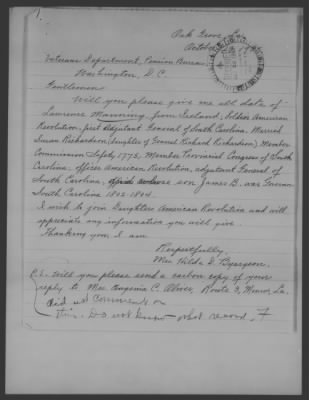 Oak Grove, La.
October
Veterans Department, Pension Bureau
Washington, D.C.
Gentlemen:
Will you please give me all data of
Laurence Manning, from Ireland, Soldier American
Revolution, first Adjutant General of South Carolina. Married
Susan Richardson (daughter of General Richard Richardson), Member
Commission Safety 1775, Member Provincial Congress of South
Carolina, officer American Revolution, adjutant General of
South Carolina, son James B. was Governor
South Carolina 1802-1804.
I wish to join Daughters American Revolution and will
appreciate any information you will give.
Thanking you, I am
Respectfully,
Mrs. Hilda D.
P.S. Will you please send a carbon copy of your
reply to Mrs. Eugenia C. Route 3, La.
did not comment on
this. Do not know what record.